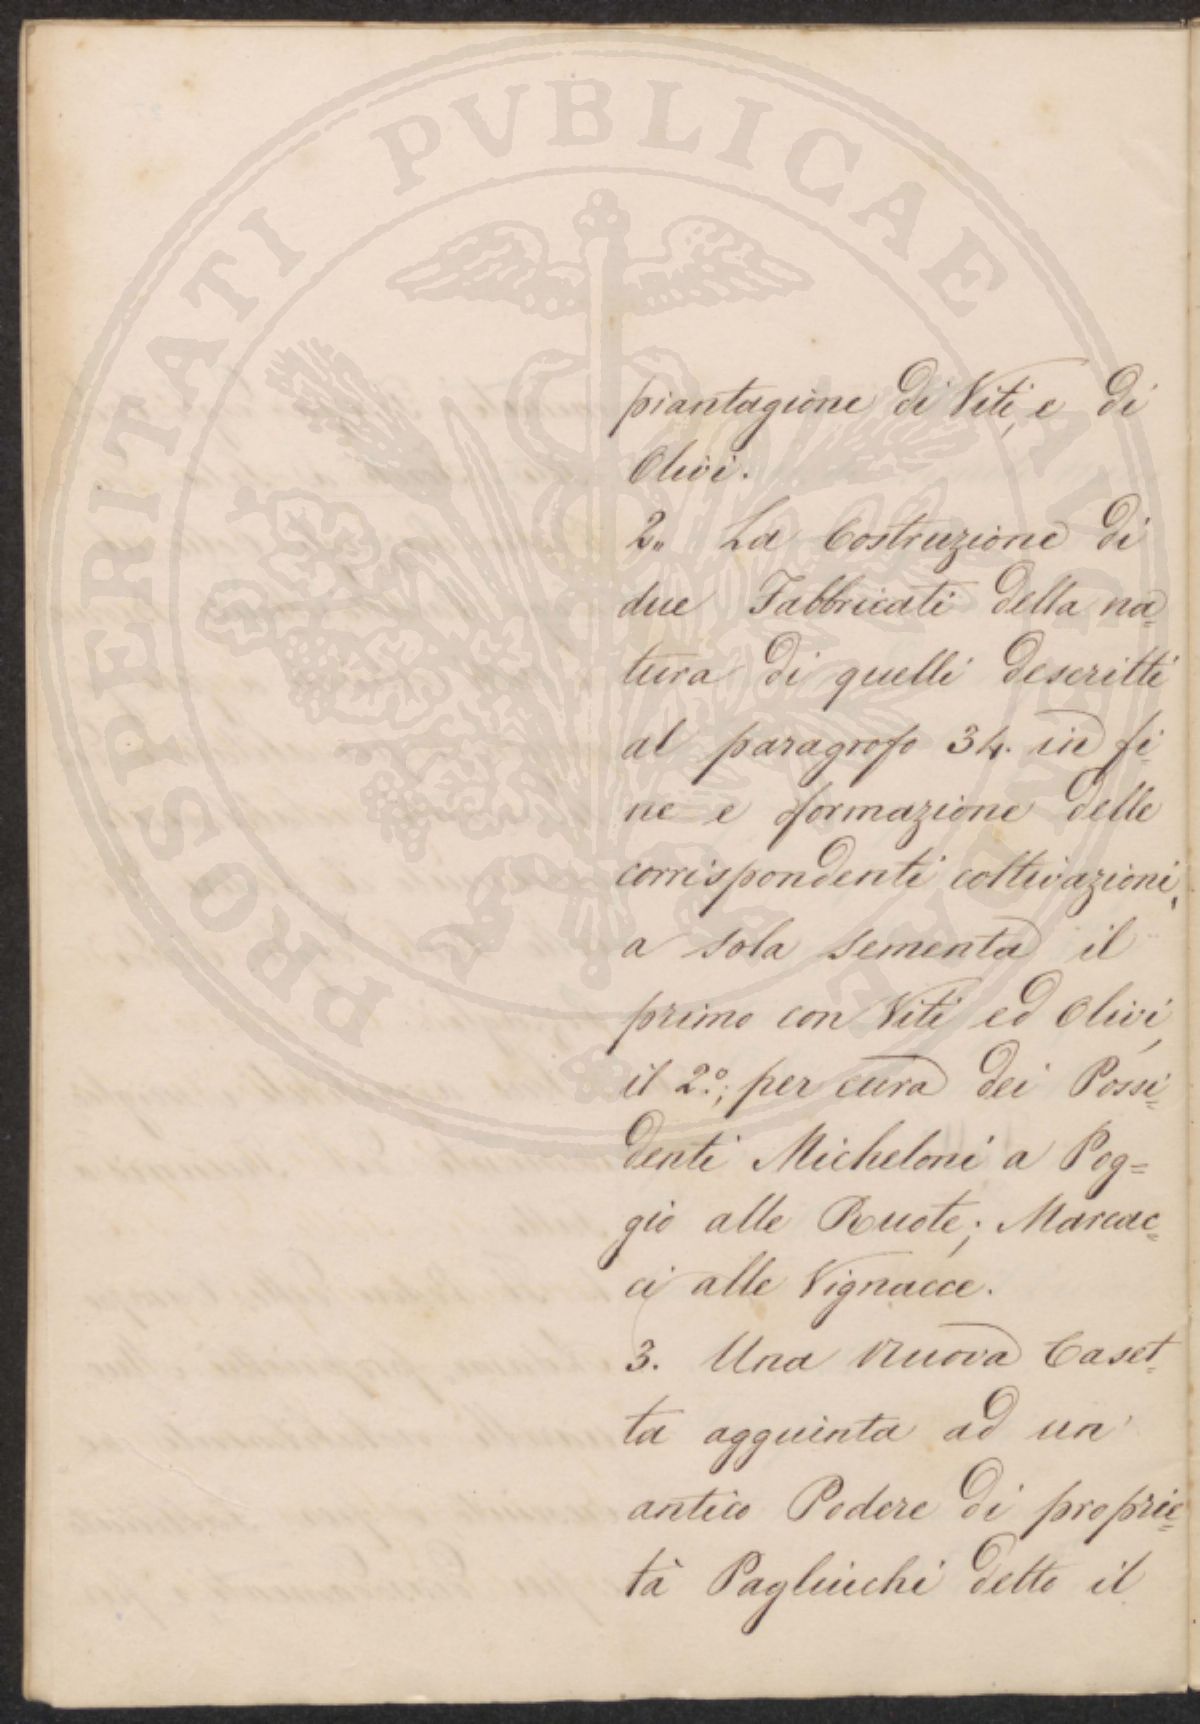 PROSPERITATI PVBLICAE AVGENDAE
piantagione di Viti, e di
Olivi.
2„ La Costruzione di
due Fabbricati della na=
tura di quelli descritti
al paragrofo 34. in fi=
ne e formazione delle
corrispondenti coltivazioni,
a sola sementa il
primo con Viti ed Olivi,
il 2.º; per cura dei Possi=
denti Micheloni a Pog=
gio alle Ruote; Marcac=
ci alle Vignacce.
3. Una nuova Caset=
ta aggiunta ad un'
antico Podere di proprie=
tà Pagliuchi detto il